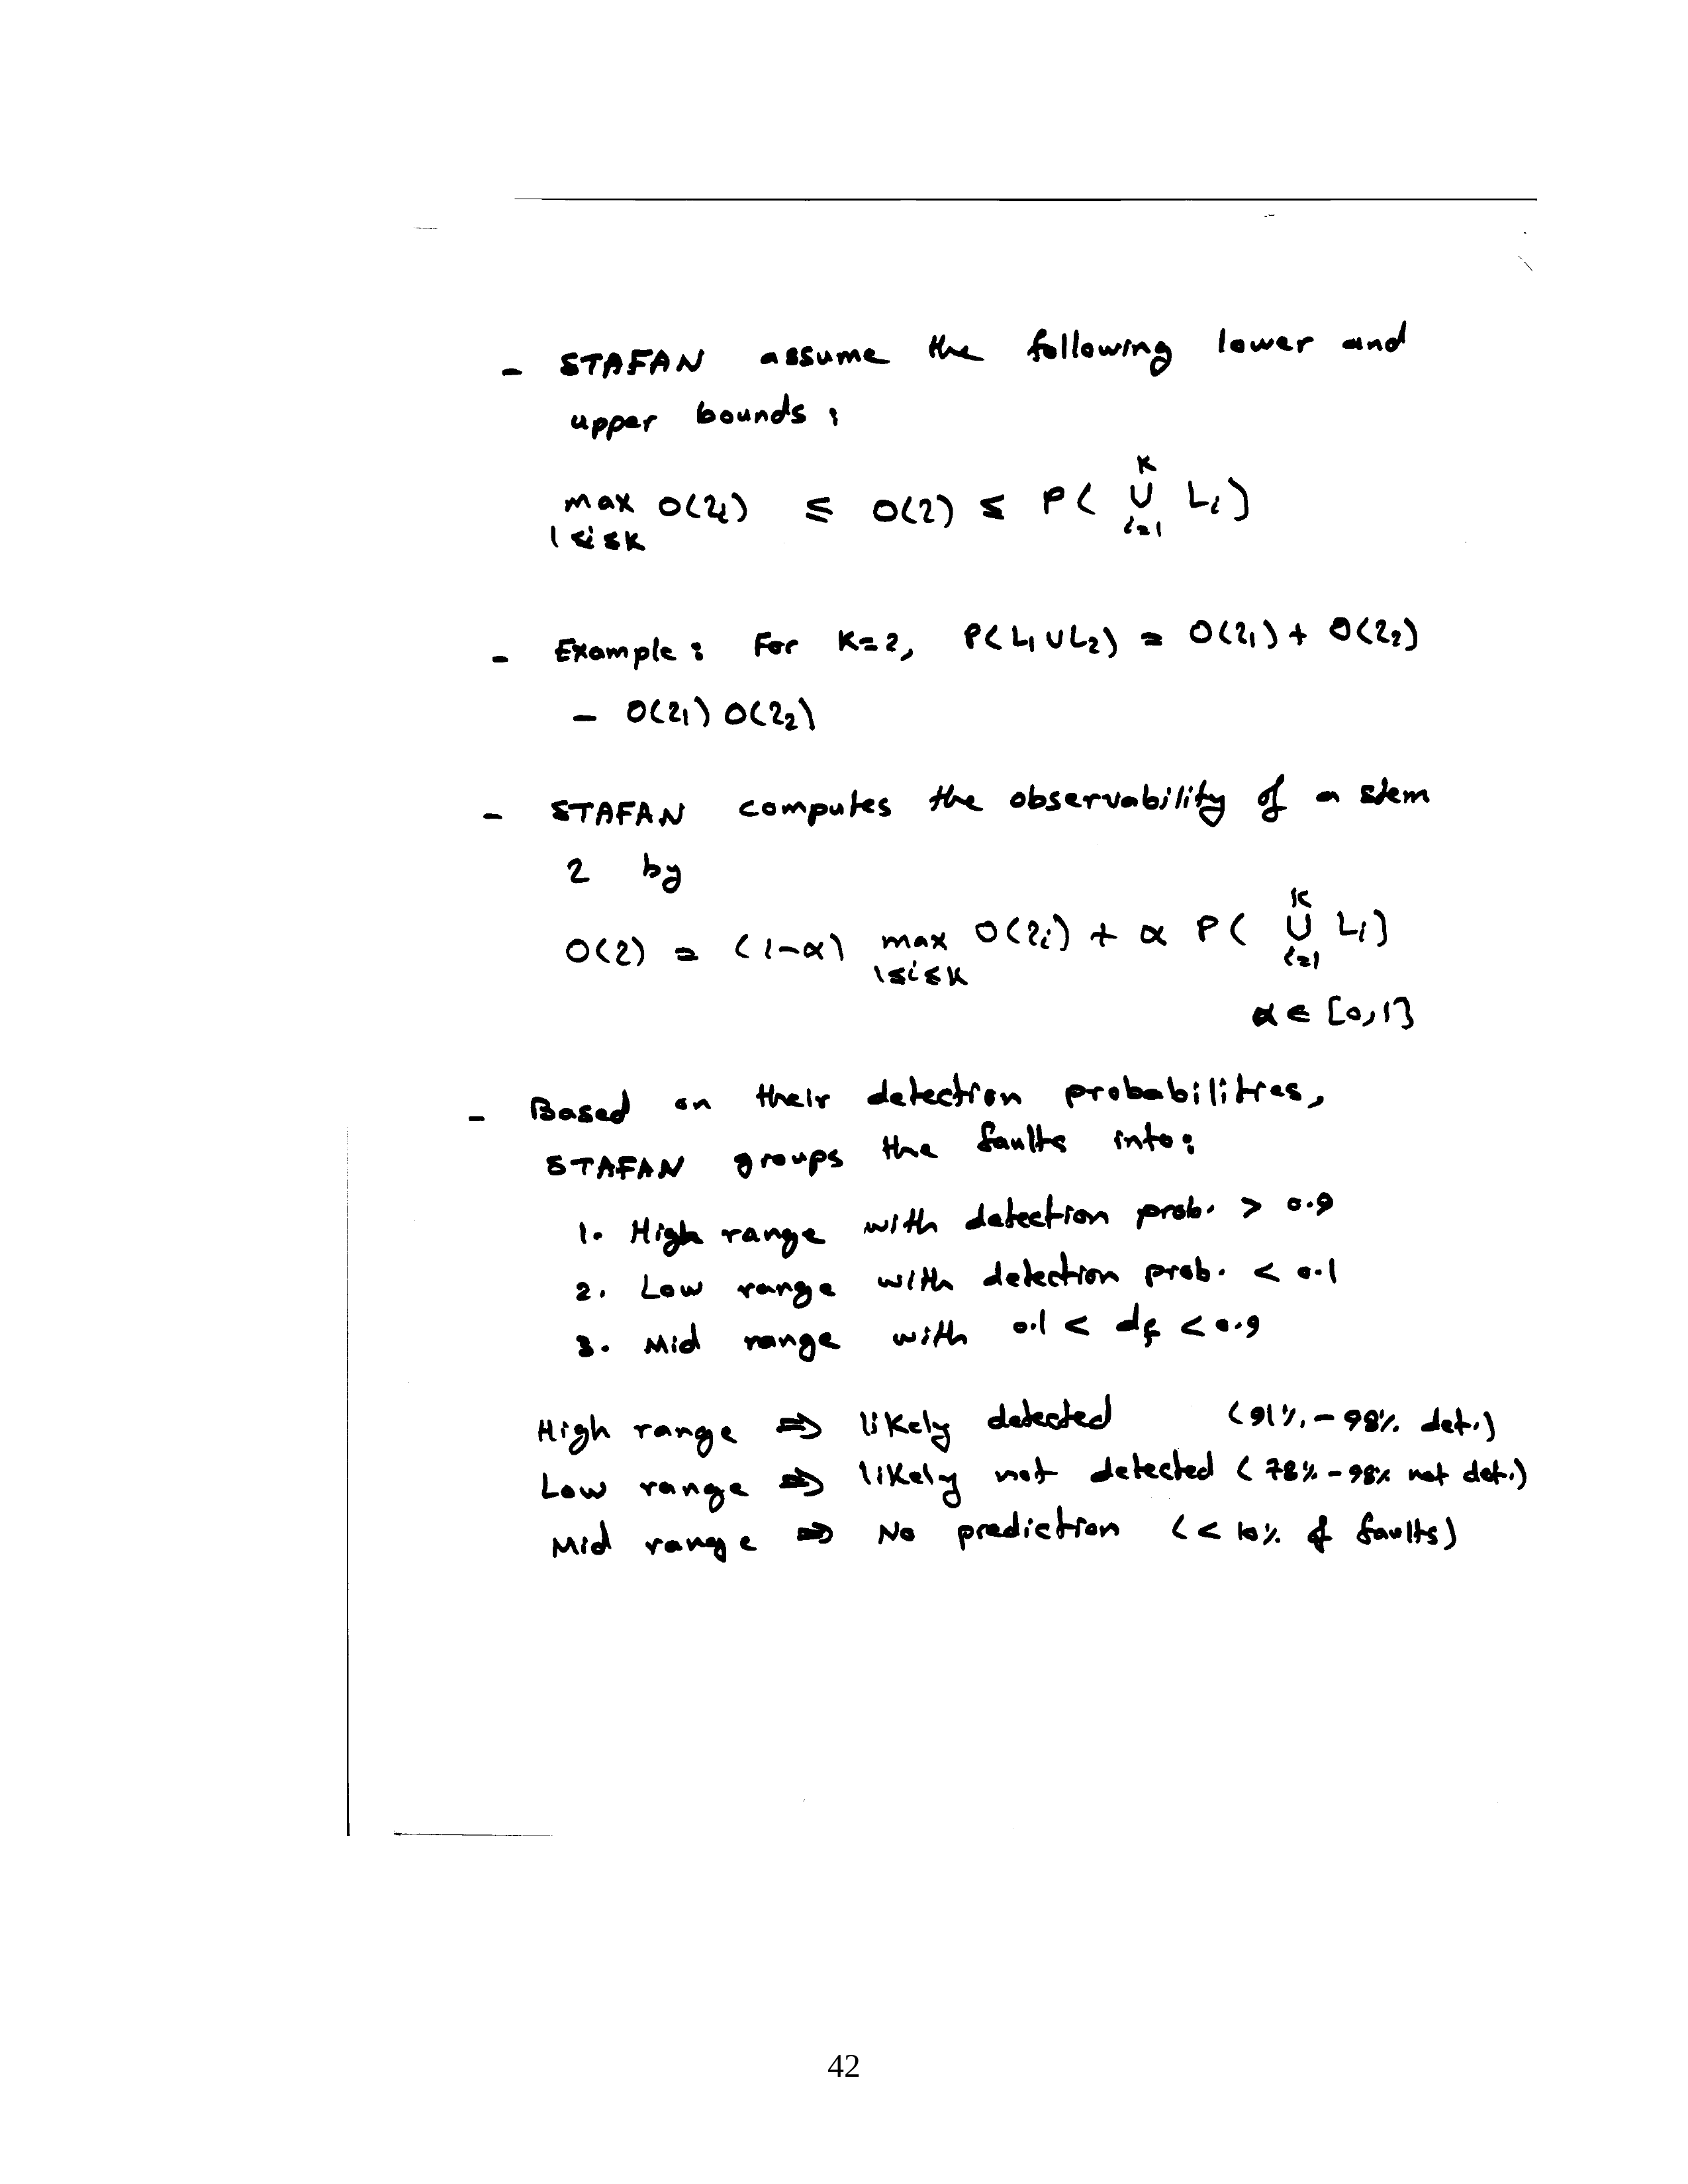 - STAFAN assume the following lower and
upper bounds :
max O(2i) ≤ O(2) ≤ P( K ∪ i=1 Li)
1≤i≤K
- Example : For K=2, P(L1 ∪ L2) = O(21) + O(22)
- O(21) O(22)
- STAFAN computes the observability of a stem
2 by
O(2) = (1-α) max O(2i) + α P( K ∪ i=1 Li)
1≤i≤K
α ∈ [0,1]
- Based on their detection probabilities,
STAFAN groups the faults into:
1. High range with detection prob. > 0.9
2. Low range with detection prob. < 0.1
3. Mid range with 0.1 < df < 0.9
High range ⇒ likely detected (91% - 98% det.)
Low range ⇒ likely not detected (78% - 98% not det.)
Mid range ⇒ No prediction (< 10% of faults)
42